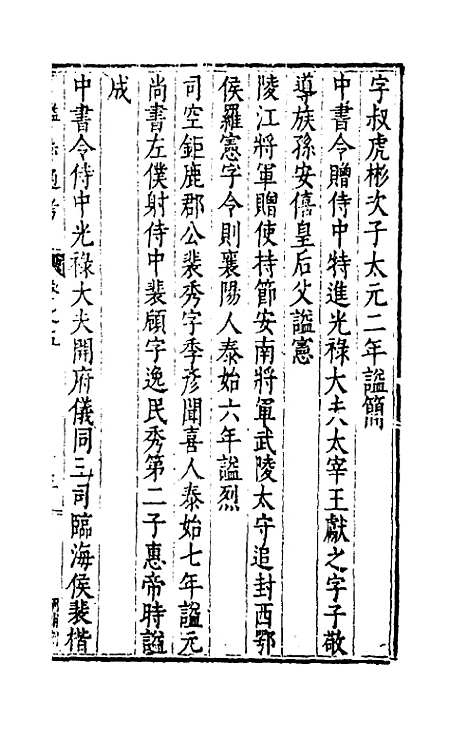 字叔虎彬次子太元二年諡簡
中書令贈侍中特進光祿大夫太宰王獻之字子敬
導族孫安僖皇后父諡憲
陵江將軍贈使持節安南將軍武陵太守追封西鄂
侯羅憲字令則襄陽人泰始六年諡烈
司空鉅鹿郡公裴秀字季彥聞喜人泰始七年諡元
尚書左僕射侍中裴頠字逸民秀第二子惠帝時諡
成
中書令侍中光祿大夫開府儀同三司臨海侯裴楷
通考